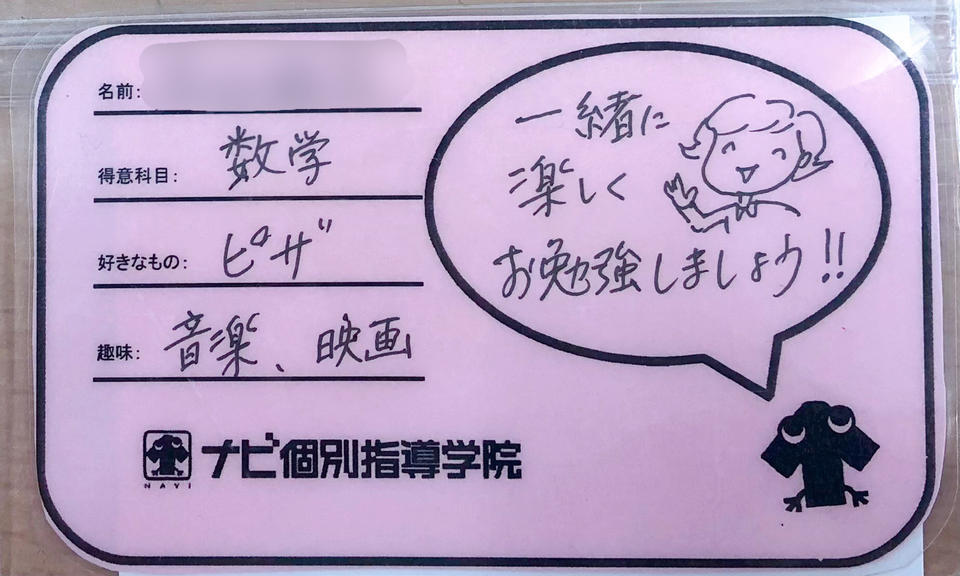 名前:
得意科目: 数学
好きなもの: ピザ
趣味: 音楽、映画
一緒に
楽しく
お勉強しましょう!!
NAVI
ナビ個別指導学院